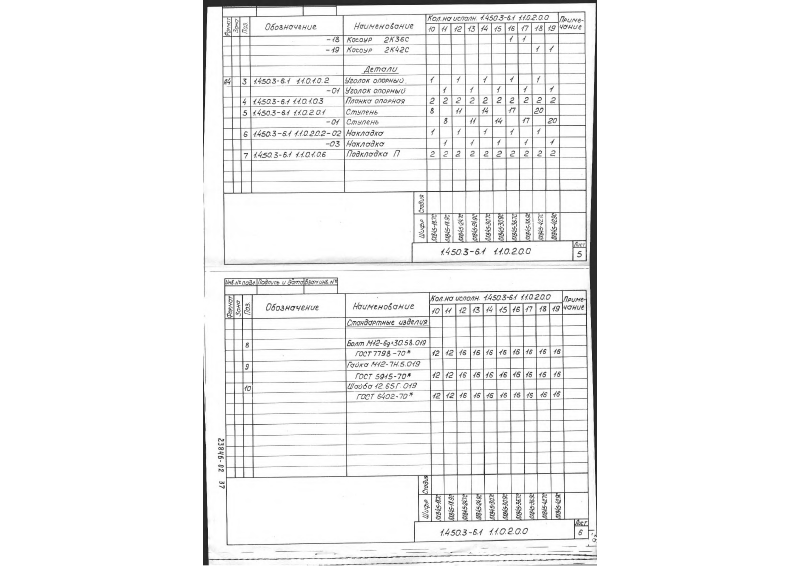 Формат Зона Поз. Обозначение Наименование Кол. на исполн. 1.450.3-6.1 1.1.0.2.0.0 Приме-чание
10 11 12 13 14 15 16 17 18 19
-18 Косоур 2К36С 1 1
-19 Косоур 2К42С 1 1
Детали
А4 3 1.450.3-6.1 1.1.0.1.0.2 Уголок опорный 1 1 1 1 1
-01 Уголок опорный 1 1 1 1 1
4 1.450.3-6.1 1.1.0.1.0.3 Планка опорная 2 2 2 2 2 2 2 2 2 2
5 1.450.3-6.1 1.1.0.2.0.1 Ступень 8 11 14 17 20
-01 Ступень 8 11 14 17 20
6 1.450.3-6.1 1.1.0.2.0.2-02 Накладка 1 1 1 1 1
-03 Накладка 1 1 1 1 1
7 1.450.3-6.1 1.1.0.1.0.6 Подкладка П 2 2 2 2 2 2 2 2 2 2
Шифр Стадия
1.450.3-6.1 1.1.0.2.0.0 Лист 5
Инв.№ подл. Подпись и дата Взам.инв.№
Формат Зона Поз. Обозначение Наименование Кол. на исполн. 1.450.3-6.1 1.1.0.2.0.0 Приме-чание
10 11 12 13 14 15 16 17 18 19
Стандартные изделия
8 Болт М12-6g×30.58.019
ГОСТ 7798-70* 12 12 16 16 16 16 16 16 16 16
9 Гайка М12-7Н.5.019
ГОСТ 5915-70* 12 12 16 16 16 16 16 16 16 16
10 Шайба 12.65Г.019
ГОСТ 6402-70* 12 12 16 16 16 16 16 16 16 16
23846-02 37
Шифр Стадия
1.450.3-6.1 1.1.0.2.0.0 Лист 6